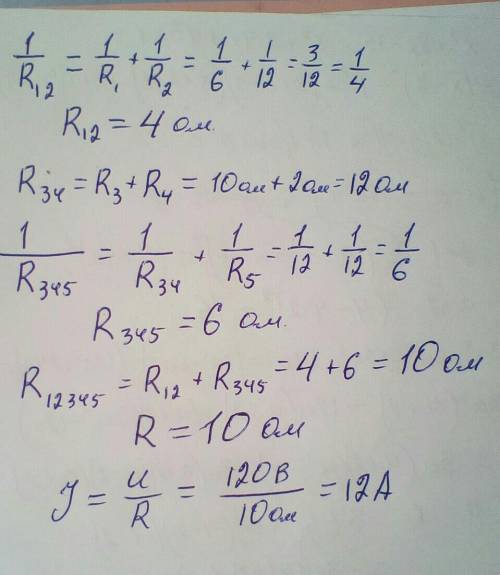 1/R₁₂ = 1/R₁ + 1/R₂ = 1/6 + 1/12 = 3/12 = 1/4
R₁₂ = 4 ом.
R₃₄ = R₃ + R₄ = 10 ом + 2 ом = 12 ом
1/R₃₄₅ = 1/R₃₄ + 1/R₅ = 1/12 + 1/12 = 1/6
R₃₄₅ = 6 ом.
R₁₂₃₄₅ = R₁₂ + R₃₄₅ = 4 + 6 = 10 ом
R = 10 ом
J = u/R = 120В/10ом = 12А